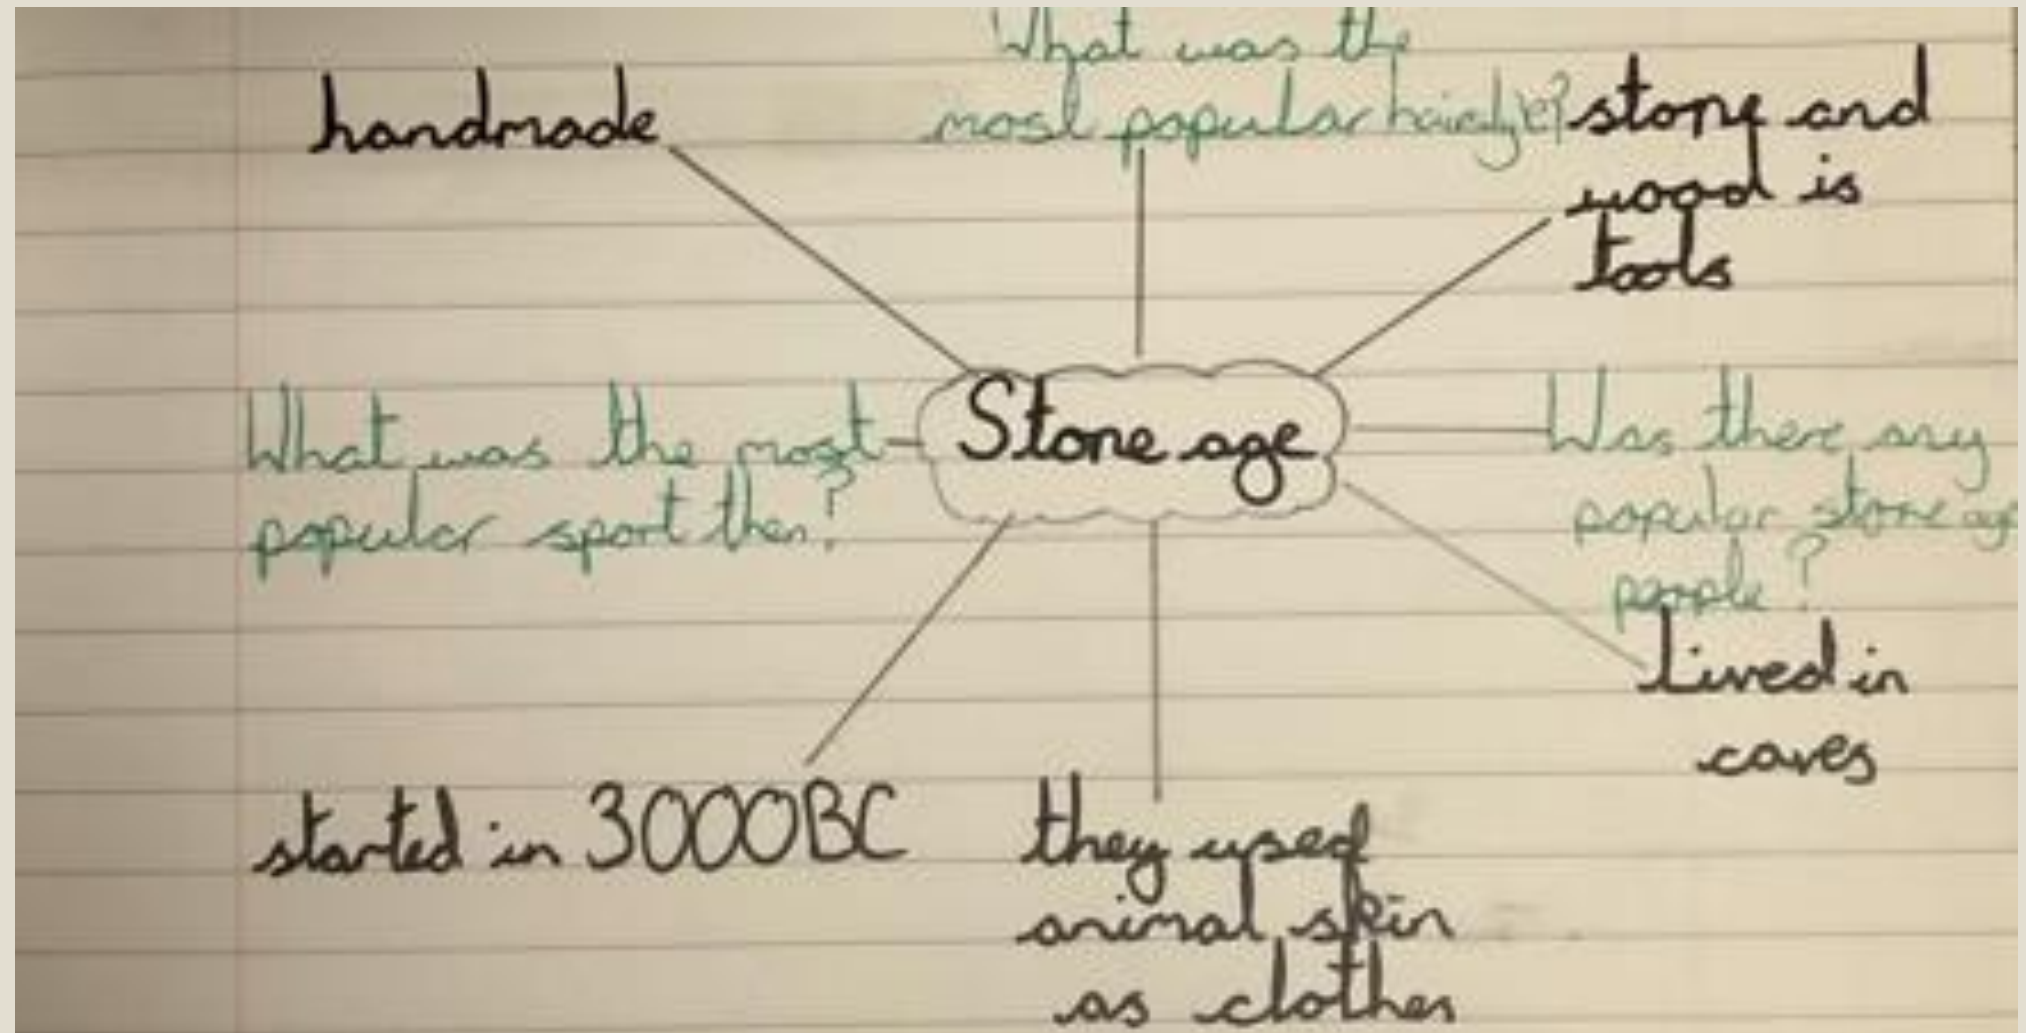 What was the
most popular hairstyle?
handmade
stone and
wood is
tools
What was the most
popular sport then?
Stone age
Was there any
popular stone age
people?
Lived in
caves
started in 3000BC
they used
animal skin
as clothes